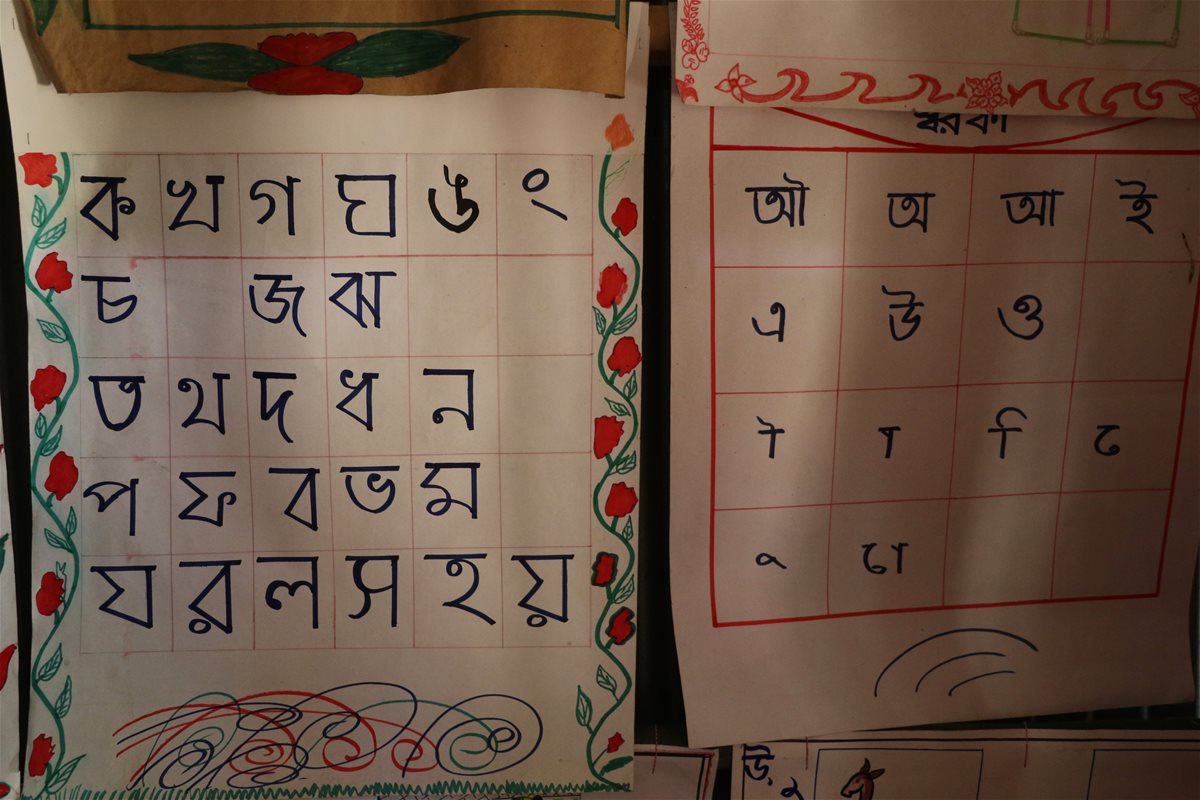 ক খ গ ঘ ঙ ং
চ জ ঝ
ত থ দ ধ ন
প ফ ব ভ ম
য র ল স হ য়
অৗ অ আ ই
এ উ ও
ৗ া ি ে
ু ো
উ ু